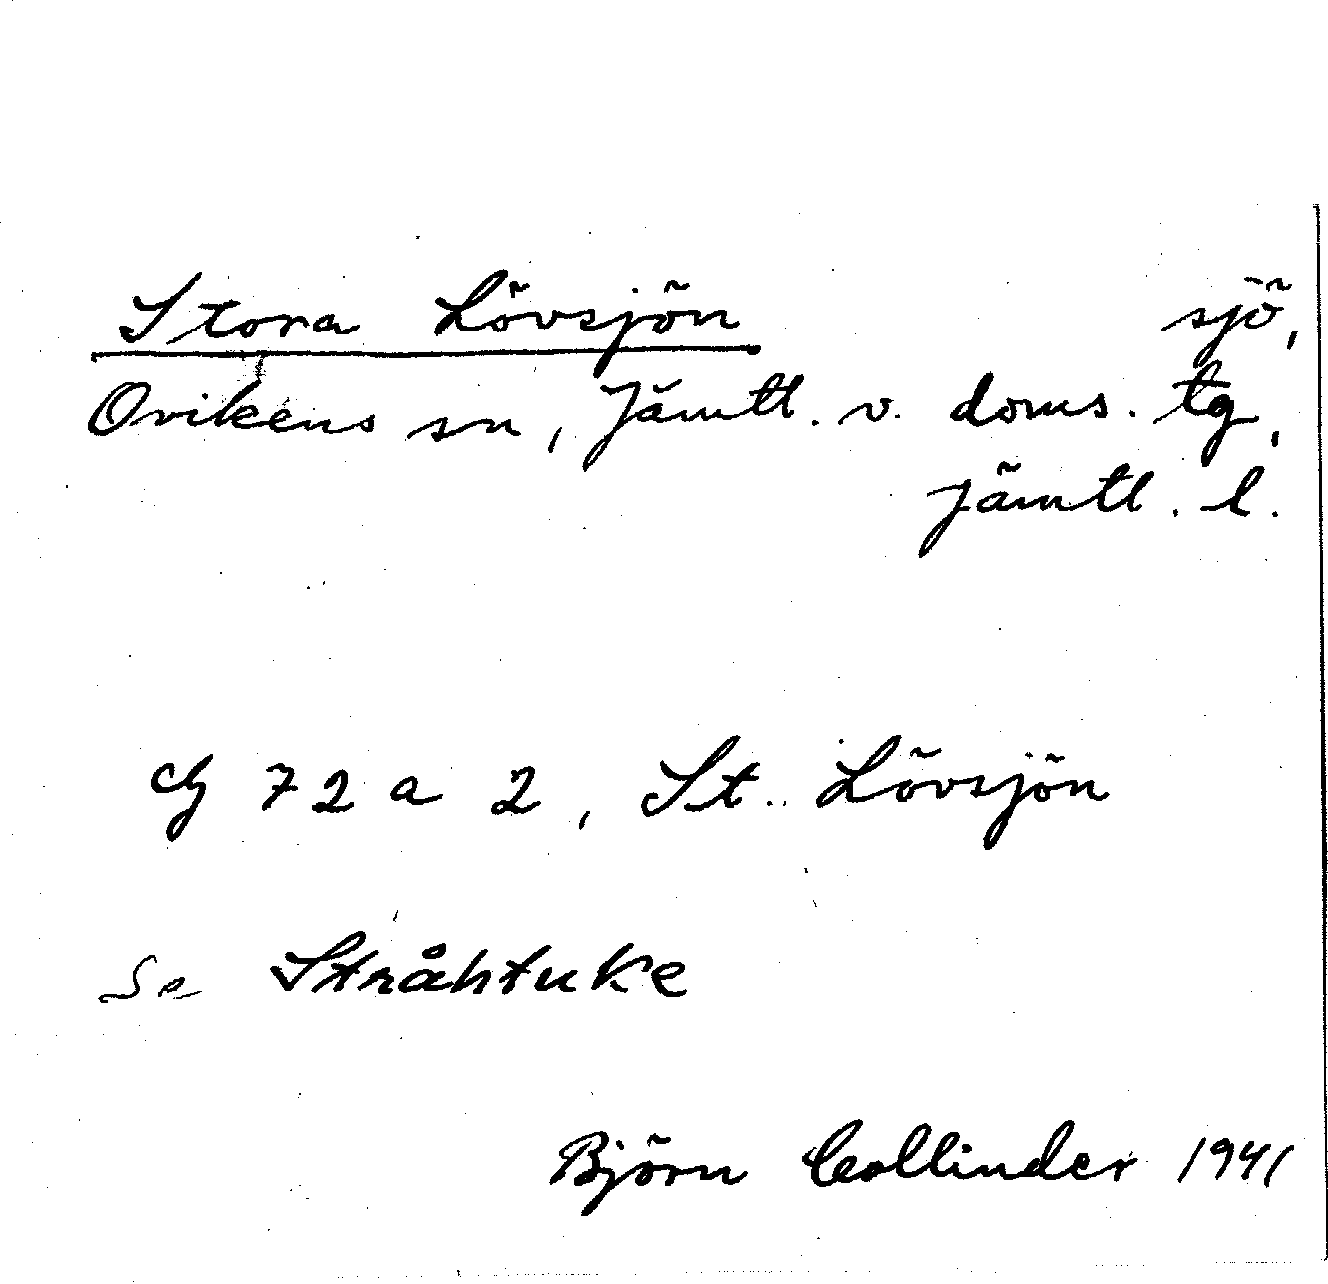 Stora Lövsjön sjö,
Ovikens sn, Jämtl. v. doms. tg,
Jämtl. l.
cg 72 a 2, St. Lövsjön
se Stråhtuke
Björn Collinder 1941